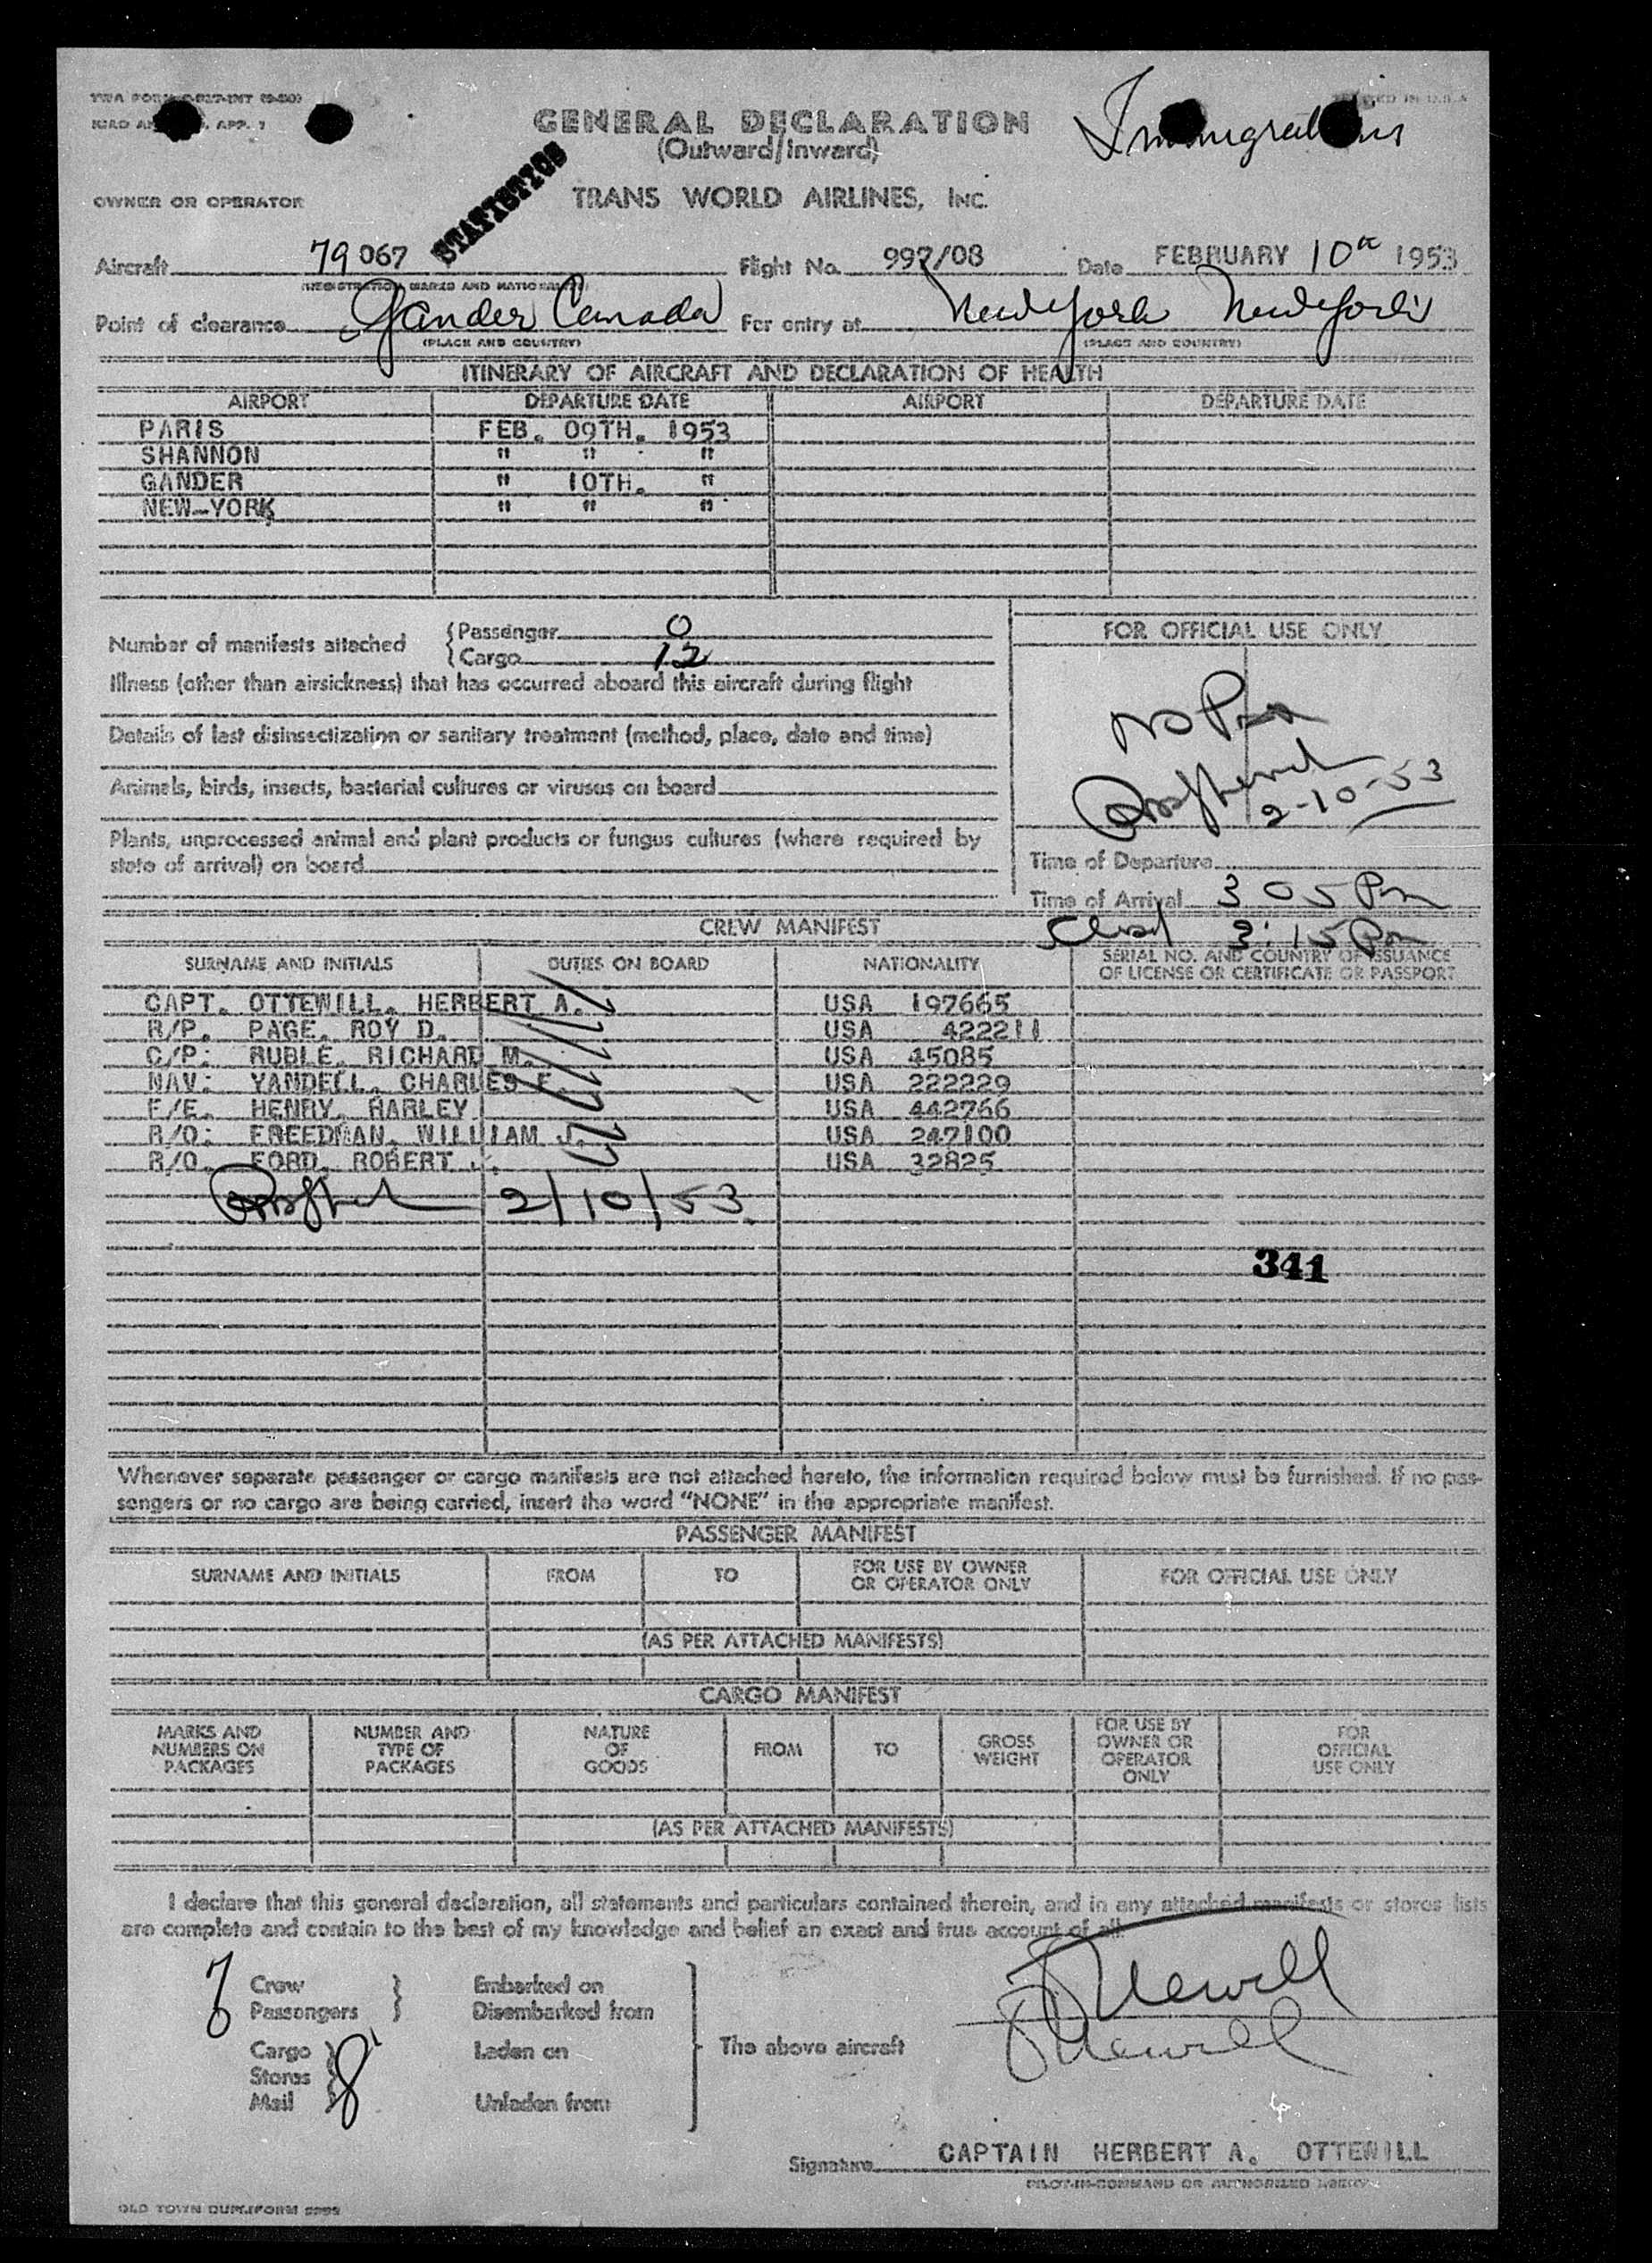 GENERAL DECLARATION
(Outward/Inward)
Immigrations
STATISTICS
OWNER OR OPERATOR TRANS WORLD AIRLINES, INC.
Aircraft 79067 Flight No. 997/08 Date FEBRUARY 10th 1953
(REGISTRATION MARKS AND NATIONALITY)
Point of clearance Gander Canada For entry at New York New York
(PLACE AND COUNTRY) (PLACE AND COUNTRY)
ITINERARY OF AIRCRAFT AND DECLARATION OF HEALTH
AIRPORT DEPARTURE DATE AIRPORT DEPARTURE DATE
PARIS FEB. 09TH. 1953
SHANNON " " "
GANDER " 10TH. "
NEW-YORK " " "
Number of manifests attached {Passenger 0
{Cargo 12
FOR OFFICIAL USE ONLY
Illness (other than airsickness) that has occurred aboard this aircraft during flight
Details of last disinsectization or sanitary treatment (method, place, date and time)
Animals, birds, insects, bacterial cultures or viruses on board
Plants, unprocessed animal and plant products or fungus cultures (where required by
state of arrival) on board
No
2-10-53
Time of Departure
Time of Arrival 3 05 Pm
3:15 Pm
CREW MANIFEST
SURNAME AND INITIALS DUTIES ON BOARD NATIONALITY SERIAL NO. AND COUNTRY OF ISSUANCE
OF LICENSE OR CERTIFICATE OR PASSPORT
CAPT. OTTEWILL, HERBERT A. USA 197665
R/P. PAGE, ROY D. USA 422211
C/P: RUBLE, RICHARD M. USA 45085
NAV: YANDELL, CHARLES F. USA 222229
F/E. HENRY, HARLEY USA 442766
R/O: FREEDMAN, WILLIAM J. USA 247100
R/O. FORD, ROBERT USA 32825
2/10/53
341
Whenever separate passenger or cargo manifests are not attached hereto, the information required below must be furnished. If no pas-
sengers or no cargo are being carried, insert the word "NONE" in the appropriate manifest.
PASSENGER MANIFEST
SURNAME AND INITIALS FROM TO FOR USE BY OWNER
OR OPERATOR ONLY FOR OFFICIAL USE ONLY
(AS PER ATTACHED MANIFESTS)
CARGO MANIFEST
MARKS AND
NUMBERS ON
PACKAGES
NUMBER AND
TYPE OF
PACKAGES
NATURE
OF
GOODS
FROM TO
GROSS
WEIGHT
FOR USE BY
OWNER OR
OPERATOR
ONLY
FOR
OFFICIAL
USE ONLY
(AS PER ATTACHED MANIFESTS)
I declare that this general declaration, all statements and particulars contained therein, and in any attached manifests or stores lists
are complete and contain to the best of my knowledge and belief an exact and true account of all
7 Crew } Embarked on
Passengers } Disembarked from
Cargo Laden on The above aircraft
Stores
Mail Unladen from
Signature CAPTAIN HERBERT A. OTTEWILL
PILOT-IN-COMMAND OR AUTHORIZED AGENT
OLD TOWN DUPLIFORM